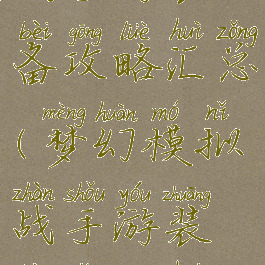 bèi gōng lüè huì zǒng
备攻略汇总
mèng huàn mó nǐ
(梦幻模拟
zhàn shǒu yóu zhuāng
战手游装